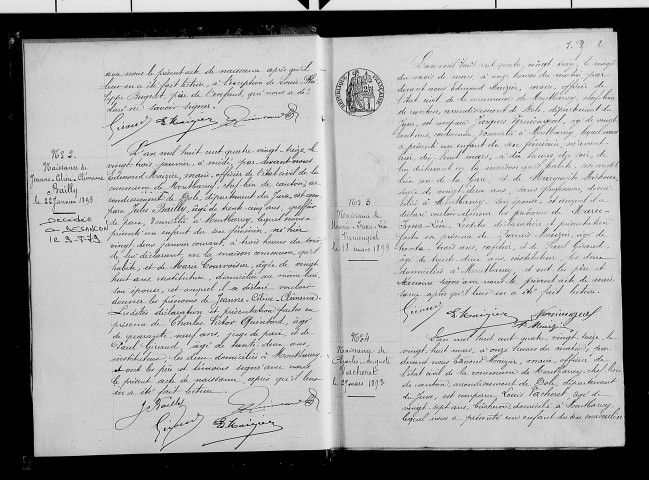 avons nous le présent acte de naissance après qu'il
leur en a été fait lecture, à l'exception de Louis
père de l'enfant, qui nous a dé-
claré ne savoir signer.
Girard E. Maizier
N° 2
Naissance de
Jeanne-Céline-Clémence
Bailly
le 22 janvier 1893
Décédée
à Besançon
le 9.5.79
L'an mil huit cent quatre-vingt-treize, le
vingt-trois janvier, à midi, par devant nous
Edmond Maizier, maire, officier de l'état civil de la
commune de Montbarrey, chef-lieu de canton, ar-
rondissement de Dole, département du Jura, est com-
paru Jules Bailly, âgé de trente cinq ans,
domicilié à Montbarrey, lequel nous a
présenté un enfant du sexe féminin, né hier
vingt-deux janvier courant, à trois heures du soir
de lui déclarant, en la maison commune, qu'il
habite, et de Marie Courvoisier, âgée de vingt
huit ans, institutrice, domiciliée au même lieu,
son épouse, et auquel il a déclaré vouloir
donner les prénoms de Jeanne-Céline-Clémence.
Lesdites déclaration et présentation faites en
présence de Charles Victor âgé
de quarante neuf ans, juge de paix, et de
Paul Girard, âgé de trente deux ans,
instituteur, les deux domiciliés à Montbarrey,
et ont le père et témoins signé avec nous
le présent acte de naissance, après qu'il leur
en a été fait lecture.
J. Bailly
Girard E. Maizier
2
RÉPUBLIQUE FRANÇAISE
N° 3
Naissance de
le 18 mars 1893
L'an mil huit cent quatre-vingt-treize, le vingt
du mois de mars, à onze heures du matin, par
devant nous Edmond Maizier, maire, officier de
l'état civil de la commune de Montbarrey, chef-lieu
de canton, arrondissement de Dole, département du
Jura, est comparu Jacques âgé de vingt
ans, domicilié à Montbarrey, lequel nous
a présenté un enfant du sexe féminin, né avant-
hier, dix-huit mars, à dix heures du soir, de
lui déclarant, en la maison qu'il habite, au même
lieu de la Gare, et de Marguerite
âgée de vingt-deux ans, sans profession, domi-
ciliée à Montbarrey, son épouse, et auquel il a
déclaré vouloir donner les prénoms de
Lesdites déclaration et présentation
faites en présence de Maizier, âgé de
trente-trois ans, et de Paul Girard,
âgé de trente-deux ans, instituteur, les deux
domiciliés à Montbarrey, et ont les père et
témoins signé avec nous le présent acte de nais-
sance après qu'il leur en a été fait lecture.
Girard E. Maizier
N° 4
Naissance de
Charles-Auguste
Vacheret
le mars 1893
L'an mil huit cent quatre-vingt-treize, le
vingt-huit mars, à onze heures du matin, par
devant nous Edmond Maizier, maire, officier de
l'état civil de la commune de Montbarrey, chef-lieu
de canton, arrondissement de Dole, département
du Jura, est comparu Louis Vacheret, âgé de
vingt-sept ans, domicilié à Montbarrey,
lequel nous a présenté un enfant du sexe masculin